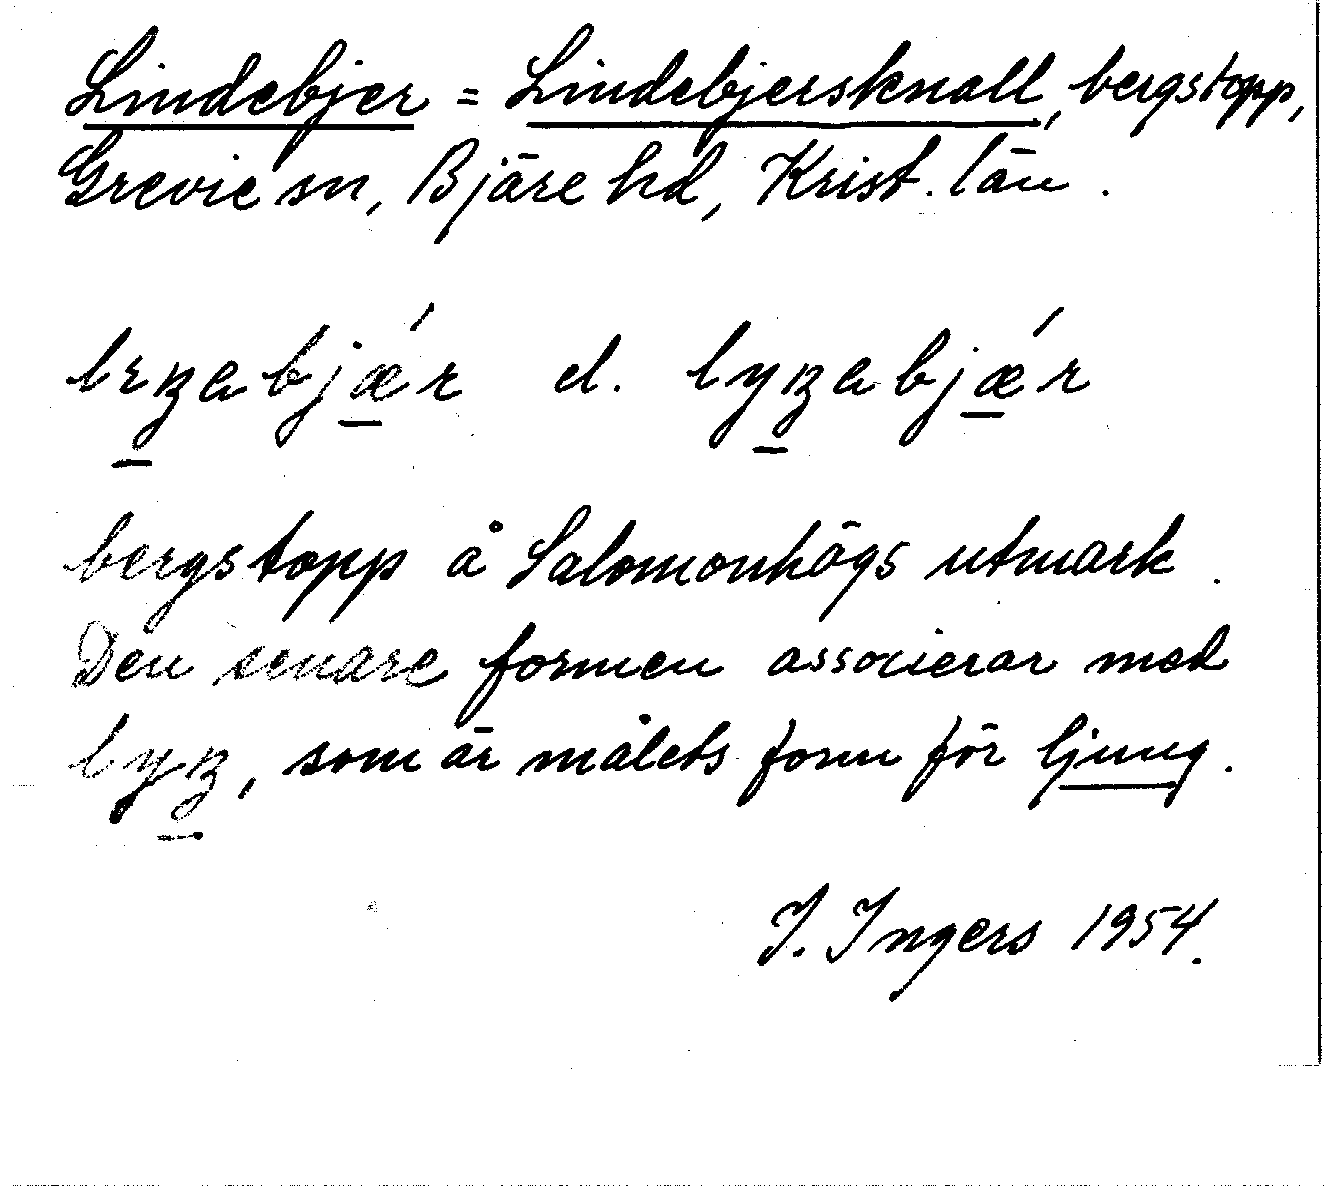 Lindebjer = Lindebjersknall, bergstopp,
Grevie sn, Bjäre hd, Krist. län.
el.
bergstopp å Salomonhögs utmark.
Den senare formen associerar med
som är målets form för ljung.
I. Ingers 1954.